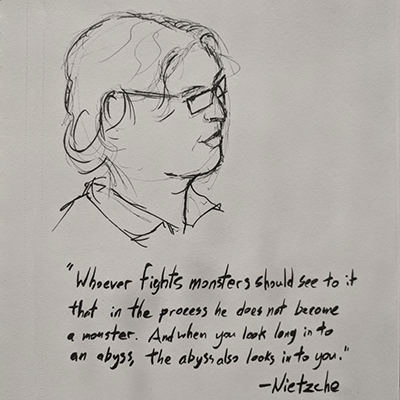 "Whoever fights monsters should see to it
that in the process he does not become
a monster. And when you look long in to
an abyss, the abyss also looks in to you."
-Nietzche